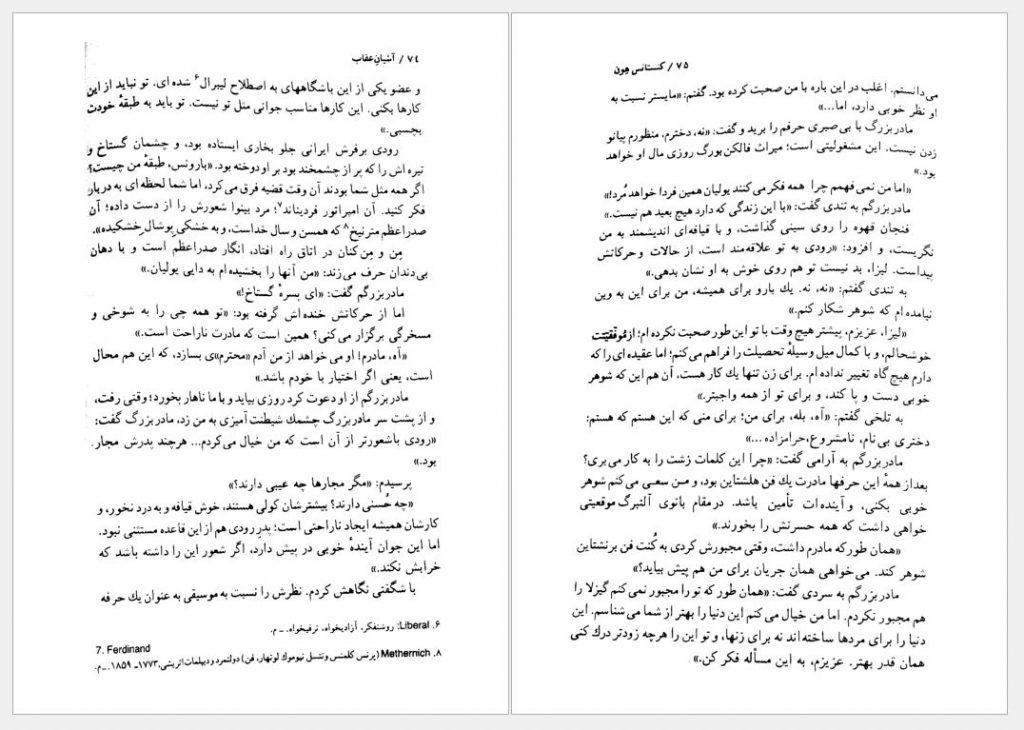 ۷٤ / آشیان عقاب
و عضو یکی از این باشگاههای به اصطلاح لیبرال۶ شده ای. تو نباید از این
کارها بکنی. این کارها مناسب جوانی مثل تو نیست. تو باید به طبقهٔ خودت
بچسبی.»
رودی برفرش ایرانی جلو بخاری ایستاده بود، و چشمان گستاخ و
تیره اش را که پر از چشمخند بود بر او دوخته بود. «بارونس، طبقهٔ من چیست؟
اگر همه مثل شما بودند آن وقت قضیه فرق می‌کرد، اما شما لحظه ای به دربار
فکر کنید. آن امپراتور فردیناند۷؛ مرد بینوا شعورش را از دست داده؛ آن
صدراعظم مترنیخ۸ که همسن و سال خداست، و به خشکی پوشال خشکیده»،
مِن و مِن‌کنان در اتاق راه افتاد، انگار صدراعظم است و با دهان
بی‌دندان حرف می‌زند: «من آنها را بخشیده‌ام به دایی یولیان.»
مادربزرگم گفت: «ای پسرهٔ گستاخ!»
اما از حرکاتش خنده‌اش گرفته بود: «تو همه چی را به شوخی و
مسخرگی برگزار می‌کنی؟ همین است که مادرت ناراحت است.»
«آه، مادرم! او می‌خواهد از من آدم «محترم»ی بسازد، که این هم محال
است، یعنی اگر اختیار با خودم باشد.»
مادربزرگم از او دعوت کرد روزی بیاید و با ما ناهار بخورد؛ وقتی رفت،
و از پشت سر مادربزرگ چشمك شیطنت آمیزی به من زد، مادربزرگ گفت:
«رودی باشعورتر از آن است که من خیال می‌کردم... هرچند پدرش مجار.
بود.»
پرسیدم: «مگر مجارها چه عیبی دارند؟»
«چه حُسنی دارند؟ بیشترشان کولی هستند، خوش قیافه و به درد نخور، و
کارشان همیشه ایجاد ناراحتی است؛ پدر رودی هم از این قاعده مستثنی نبود.
اما این جوان آیندهٔ خوبی در پیش دارد، اگر شعور این را داشته باشد که
خرابش نکند.»
با شگفتی نگاهش کردم. نظرش را نسبت به موسیقی به عنوان یك حرفه
۶. Liberal: روشنفکر، آزادیخواه، ترقیخواه. ـ م.
7. Ferdinand
۸. Methernich (پرنس کلمنس ونتسل نپوموك لوتهار، فن) دولتمرد و دیپلمات اتریشی، ۱۷۷۳ـ ۱۸۵۹. ـ م.
۷۵ / کنستانس هون
می‌دانستم. اغلب در این باره با من صحبت کرده بود. گفتم: «مایستر نسبت به
او نظر خوبی دارد، اما...»
مادربزرگ با بی‌صبری حرفم را برید و گفت: «نه، دخترم، منظورم پیانو
زدن نیست. این مشغولیتی است؛ میراث فالکن‌بورگ روزی مال او خواهد
بود.»
«اما من نمی فهمم چرا همه فکر می‌کنند یولیان همین فردا خواهد مُرد!»
مادربزرگم به تندی گفت: «با این زندگی که دارد هیچ بعید هم نیست.»
فنجان قهوه را روی سینی گذاشت، و با قیافه‌ای اندیشمند به من
نگریست، و افزود: «رودی به تو علاقه‌مند است، از حالات و حرکاتش
پیداست. لیزا، بد نیست تو هم روی خوش به او نشان بدهی.»
به تندی گفتم: «نه، نه. یك بارو برای همیشه، من برای این به وین
نیامده ام که شوهر شکار کنم.»
«لیزا، عزیزم، پیشتر هیچ وقت با تو این طور صحبت نکرده ام؛ از موفقیتت
خوشحالم، و با کمال میل وسیلهٔ تحصیلت را فراهم می‌کنم؛ اما عقیده ای را که
دارم هیچ گاه تغییر نداده ام. برای زن تنها یك کار هست، آن هم این که شوهر
خوبی دست و پا کند، و برای تو از همه واجبتر.»
به تلخی گفتم: «آه، بله، برای من؛ برای منی که این هستم که هستم:
دختری بی‌نام، نامشروع، حرامزاده ...»
مادربزرگم به آرامی گفت: «چرا این کلمات زشت را به کار می‌بری؟
بعداز همهٔ این حرفها مادرت یك فن هلشتاین بود، و من سعی می‌کنم شوهر
خوبی بکنی، و آینده‌ات تأمین باشد. درمقام بانوی آلتبرگ موقعیتی
خواهی داشت که همه حسرتش را بخورند.»
«همان طورکه مادرم داشت، وقتی مجبورش کردی به کُنت فن برنشتاین
شوهر کند. می‌خواهی همان جریان برای من هم پیش بیاید؟»
مادربزرگم به سردی گفت: «همان طور که تو را مجبور نمی‌کنم گیزلا را
هم مجبور نکردم. اما من خیال می‌کنم این دنیا را بهتر از شما می‌شناسم. این
دنیا را برای مردها ساخته‌اند نه برای زنها، و تو این را هرچه زودتر درك کنی
همان قدر بهتر. عزیزم، به این مسأله فکر کن.»